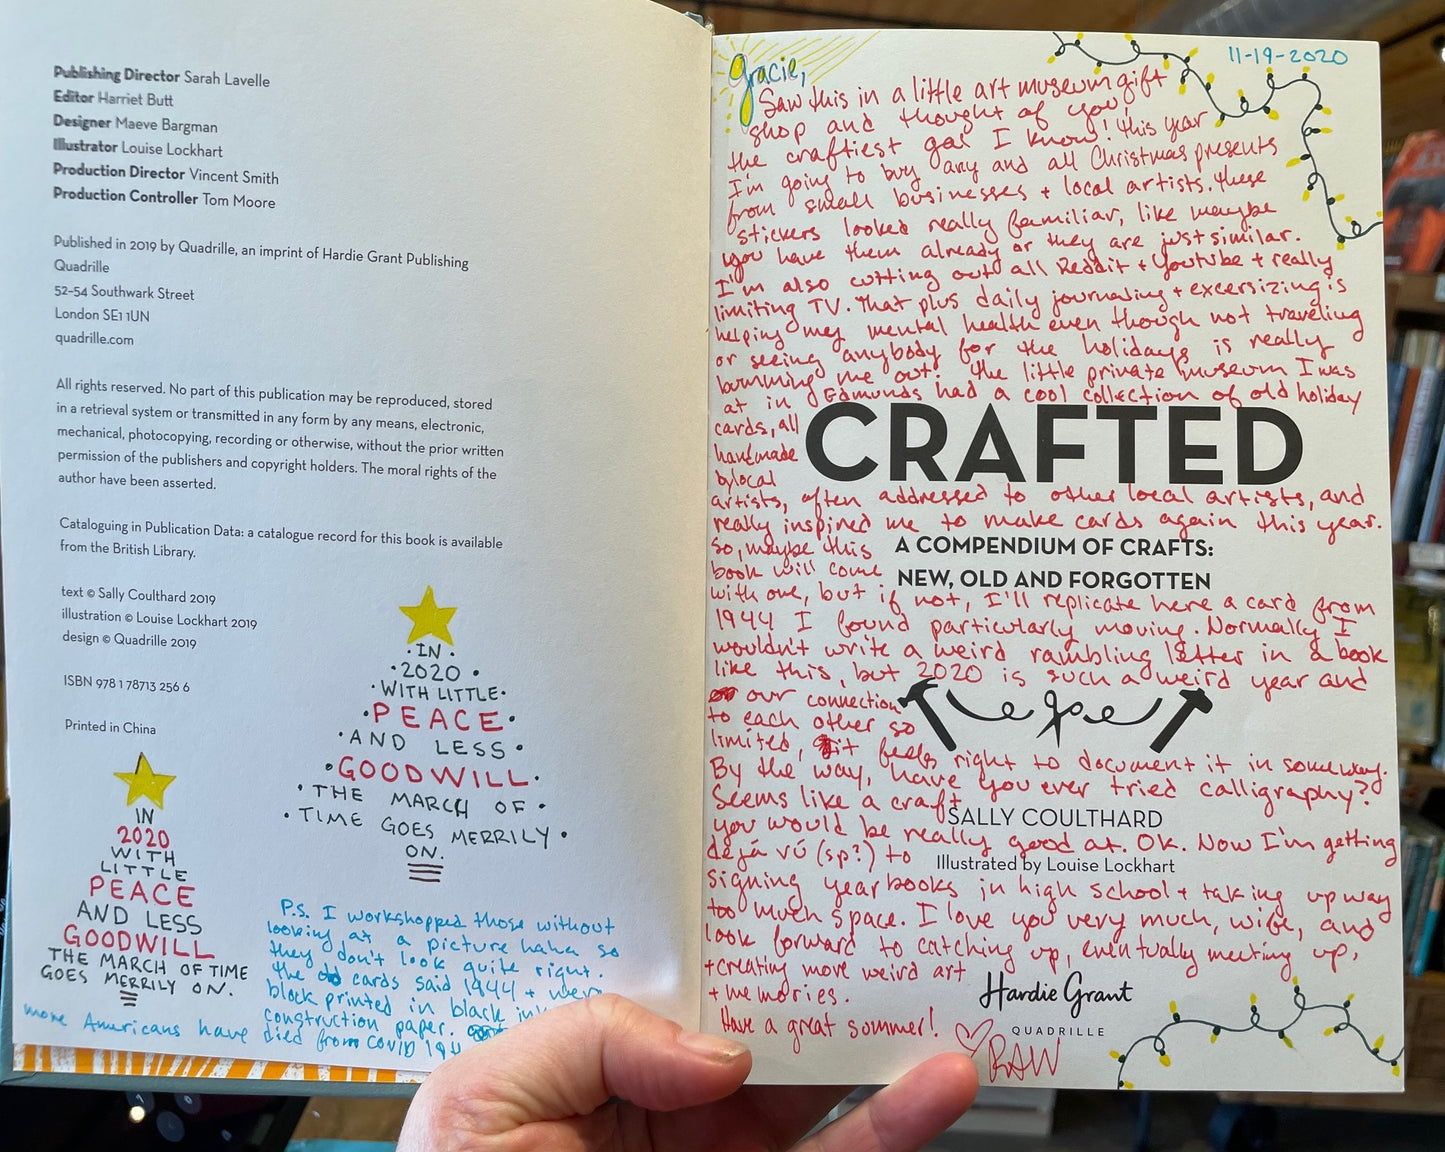 Publishing Director Sarah Lavelle
Editor Harriet Butt
Designer Maeve Bargman
Illustrator Louise Lockhart
Production Director Vincent Smith
Production Controller Tom Moore
Published in 2019 by Quadrille, an imprint of Hardie Grant Publishing
Quadrille
52–54 Southwark Street
London SE1 1UN
quadrille.com
All rights reserved. No part of this publication may be reproduced, stored
in a retrieval system or transmitted in any form by any means, electronic,
mechanical, photocopying, recording or otherwise, without the prior written
permission of the publishers and copyright holders. The moral rights of the
author have been asserted.
Cataloguing in Publication Data: a catalogue record for this book is available
from the British Library.
text © Sally Coulthard 2019
illustration © Louise Lockhart 2019
design © Quadrille 2019
ISBN 978 1 78713 256 6
Printed in China
IN
2020
WITH
LITTLE
PEACE
AND LESS
GOODWILL
THE MARCH OF TIME
GOES MERRILY ON.
IN
2020
WITH LITTLE
PEACE
AND LESS
GOODWILL
THE MARCH OF
TIME GOES MERRILY
ON.
P.S. I workshopped those without
looking at a picture haha so
they don't look quite right.
The cards said 1944 + were
block printed in black
construction paper.
more Americans have died from COVID
11-19-2020
Gracie,
Saw this in a little art museum gift
shop and thought of you,
the craftiest gal I know! This year
I'm going to buy any and all Christmas presents
from small businesses + local artists. These
stickers looked really familiar, like maybe
you have them already or they are just similar.
I'm also cutting out all Reddit + Youtube + really
limiting TV. That plus daily journaling + excersizing is
helping my mental health even though not traveling
or seeing anybody for the holidays is really
bumming me out. The little private museum I was
at in Edmunds had a cool collection of old holiday
cards, all
handmade
by local
CRAFTED
artists, often addressed to other local artists, and
really inspired me to make cards again this year.
So, maybe this
book will come
A COMPENDIUM OF CRAFTS:
NEW, OLD AND FORGOTTEN
with one, but if not, I'll replicate here a card from
1944 I found particularly moving. Normally I
wouldn't write a weird rambling letter in a book
like this, but 2020 is such a weird year and
our connection
to each other so
limited, it feels right to document it in some way.
By the way, have you ever tried calligraphy?
Seems like a craft
SALLY COULTHARD
you would be really good at. OK. Now I'm getting
déjá vú (sp?) to
Illustrated by Louise Lockhart
signing yearbooks in high school + taking up way
too much space. I love you very much, wife, and
look forward to catching up, eventually meeting up,
+ creating more weird art
+ memories.
Hardie Grant
QUADRILLE
Have a great summer!
RAW